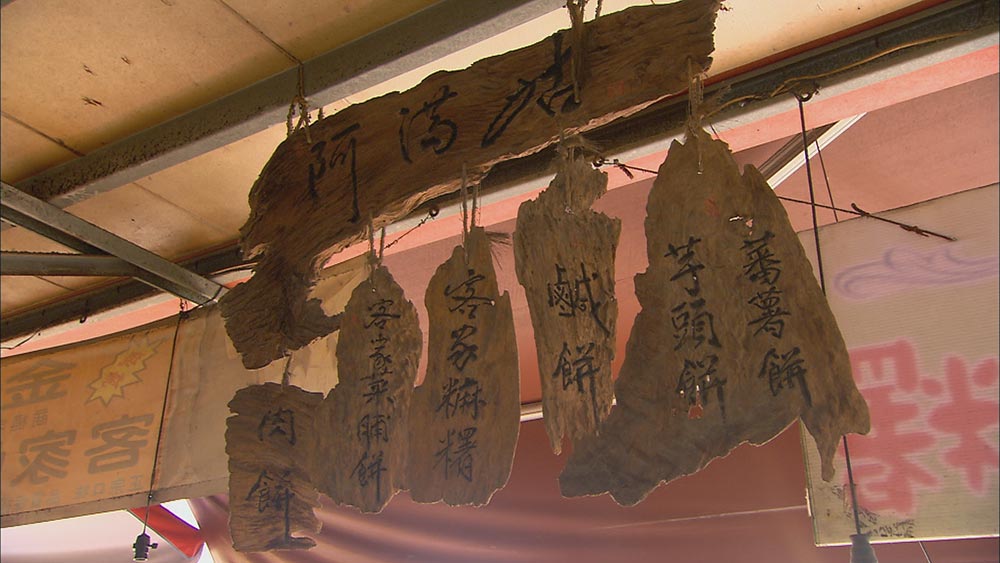 阿滿姑
肉餅
客家菜脯餅
客家麻糬
鹹餅
芋頭餅
蕃薯餅
金
客家